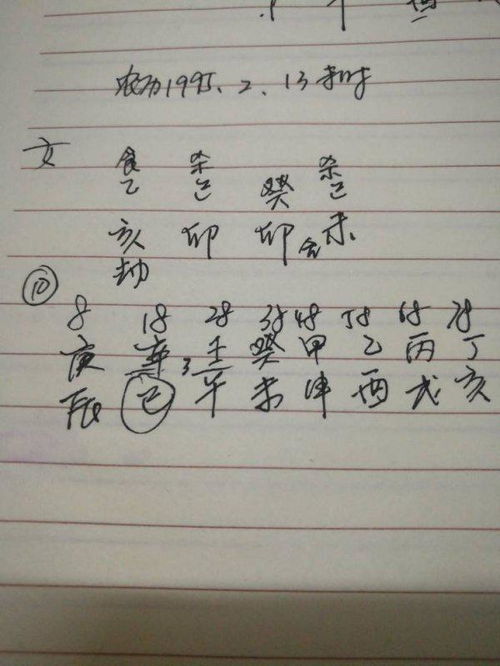 农历1995.2.13未时
女 食 杀 杀
乙 己 癸 己
亥 卯 卯 合 未
劫
⑩
8 18 28 38 48 58 68 78
庚 辛 3 壬 癸 甲 乙 丙 丁
辰 巳 午 未 申 酉 戌 亥